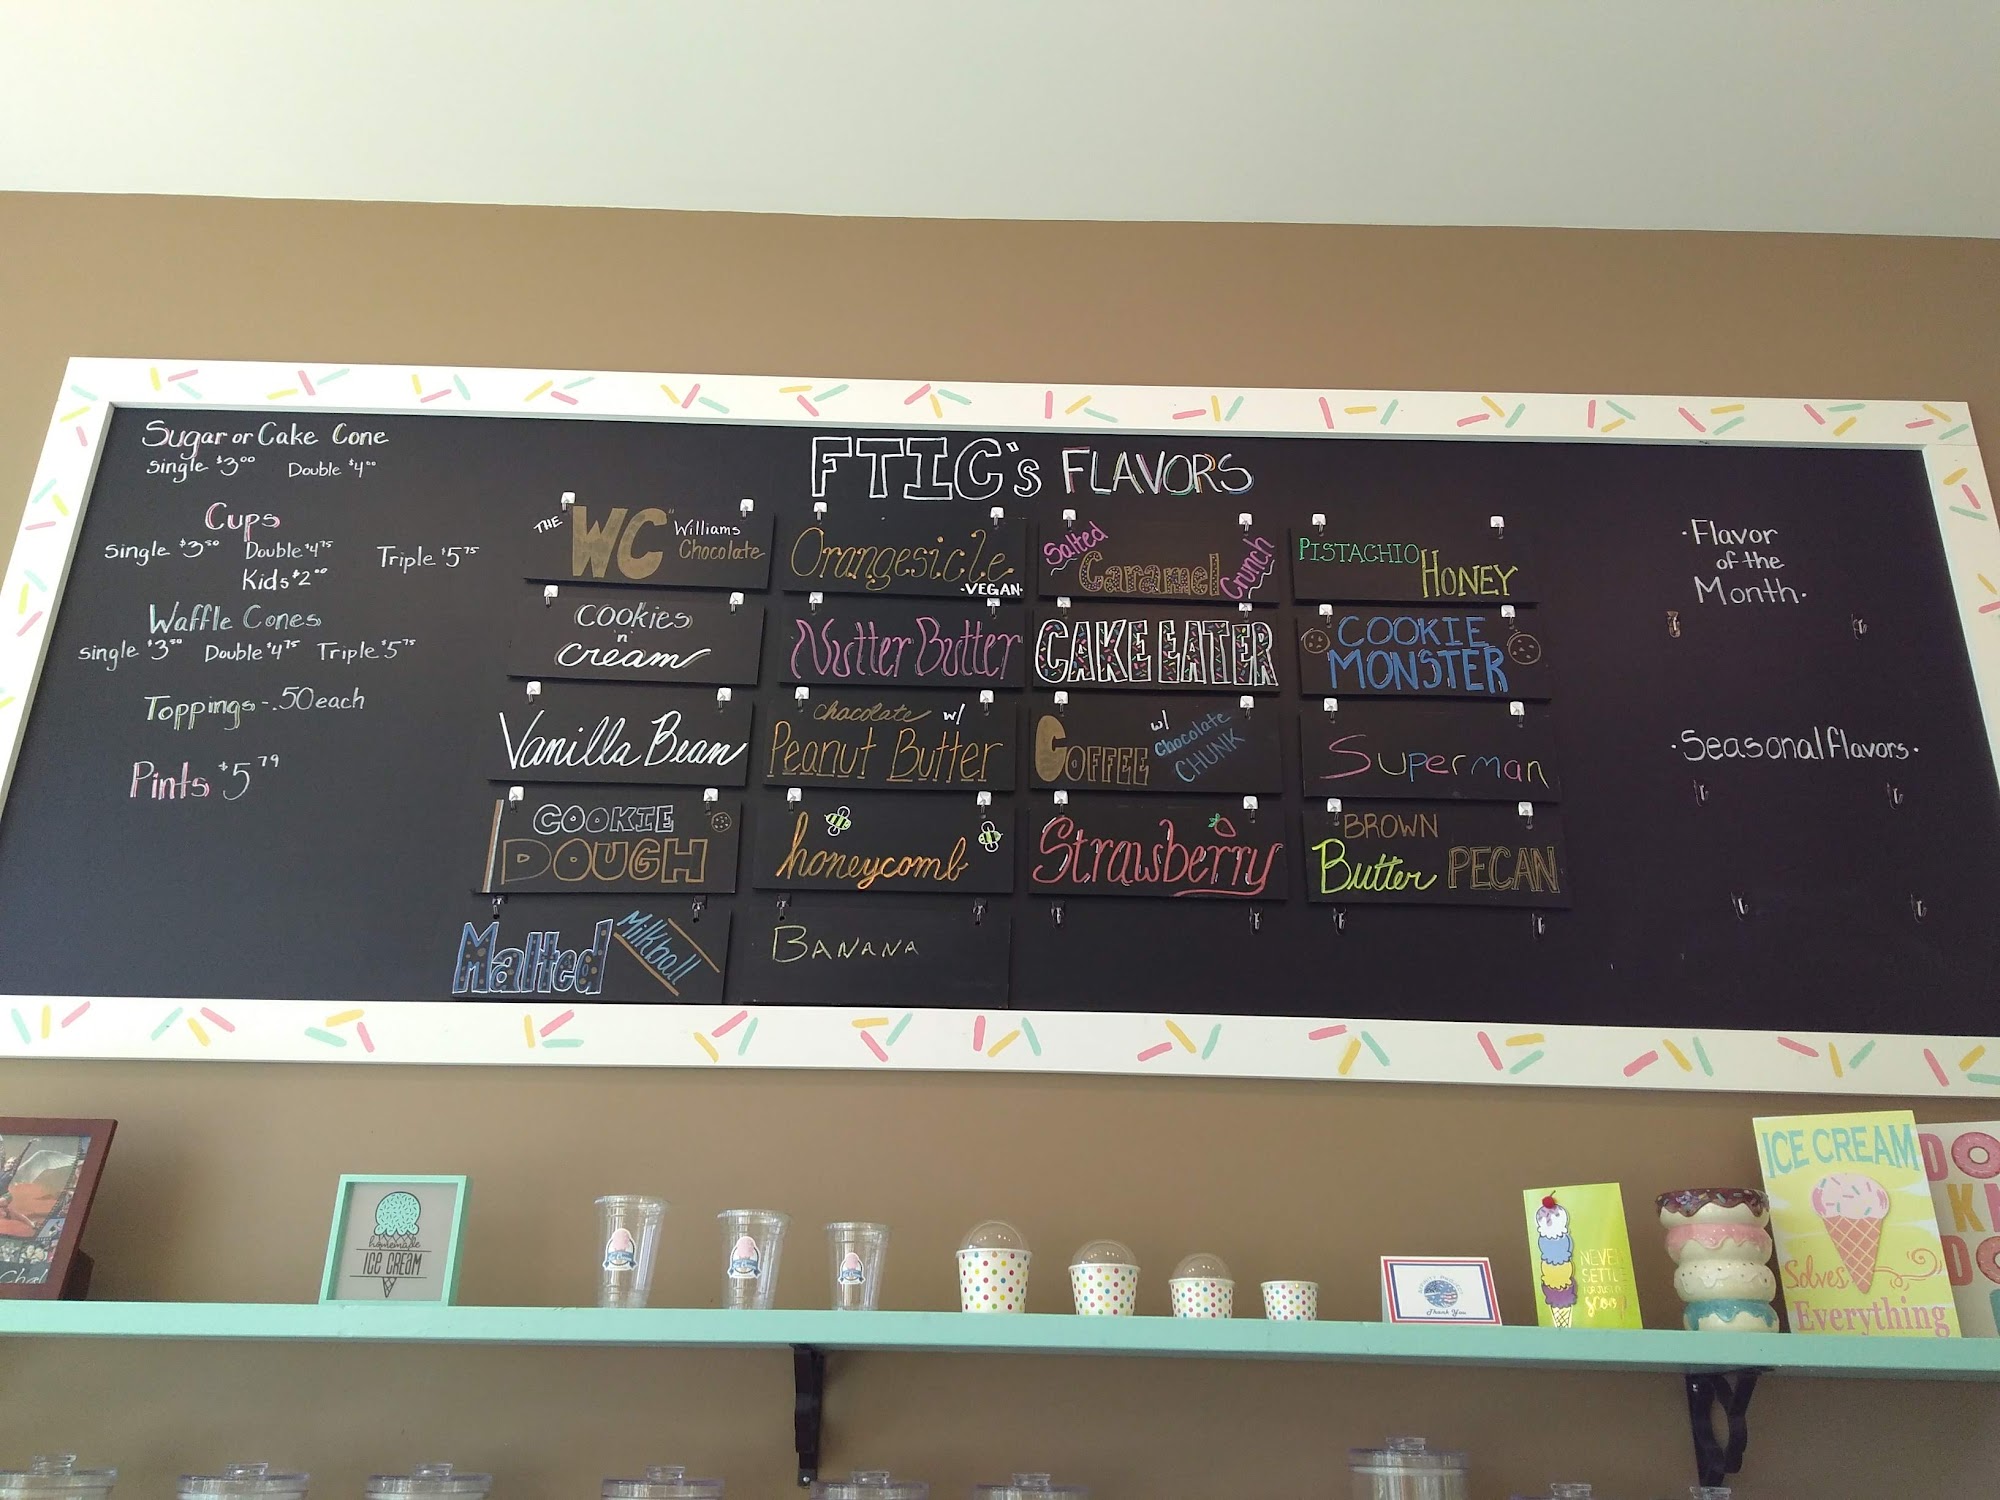 Sugar or Cake Cone
Single $3.00 Double $4.00
Cups
Single $3.50 Double $4.75 Triple $5.75
Kids $2.00
Waffle Cones
Single $3.50 Double $4.75 Triple $5.75
Toppings - .50 each
Pints $5.79
FTIC's FLAVORS
THE WC Williams Chocolate
Orangesicle
·VEGAN·
Salted
Caramel
Crunch
PISTACHIO
HONEY
COOKIES
'n'
cream
Nutter Butter
CAKE EATER
COOKIE
MONSTER
Vanilla Bean
chocolate w/
Peanut Butter
COFFEE w/ Chocolate
CHUNK
Superman
COOKIE
DOUGH
honeycomb
Strawberry
BROWN
Butter PECAN
Malted Milkball
BANANA
·Flavor
of the
Month·
·Seasonal flavors·
homemade
ICE CREAM
Thank You
NEVER
SETTLE
FOR JUST
scoop
ICE CREAM
Solves
Everything
DO